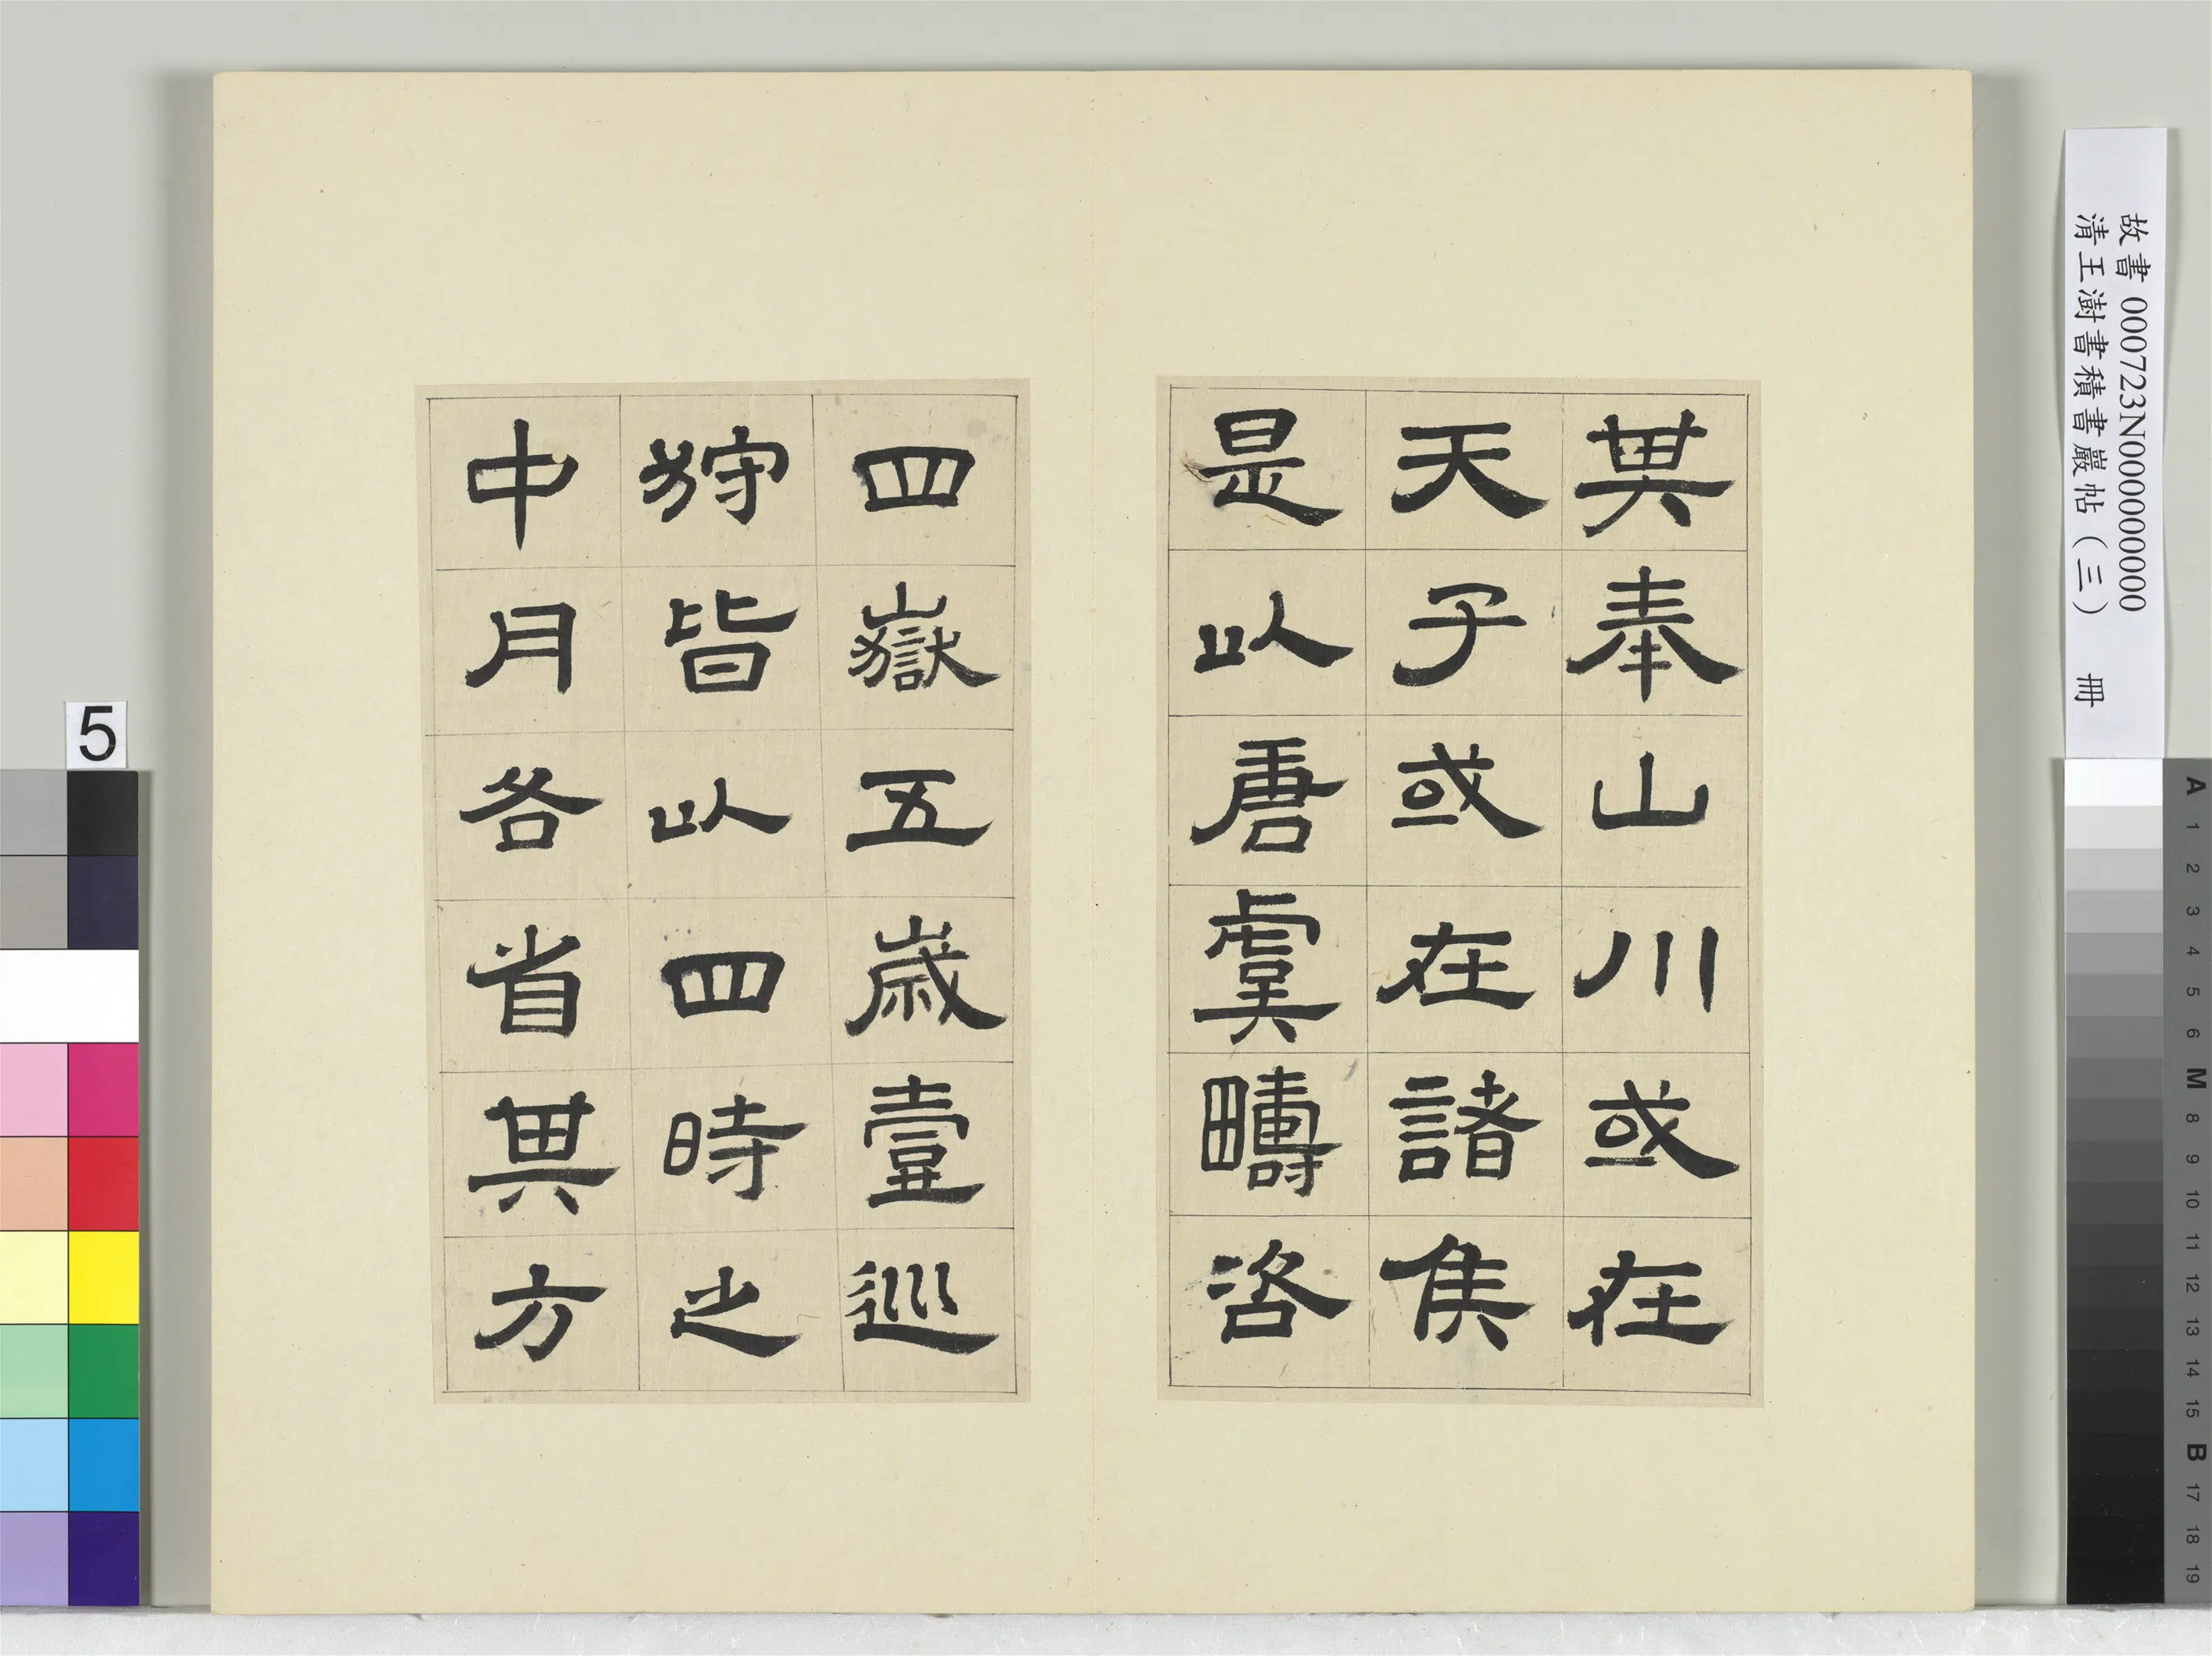 其奉山川或在
天子或在諸矦
是以唐虞疇咨
四嶽五歲壹巡
狩皆以四時之
中月各省其方
故書 000723N000000000
清王澍書積書巖帖（三） 冊
5
A 1 2 3 4 5 6 M 8 9 10 11 12 13 14 15 B 17 18 19